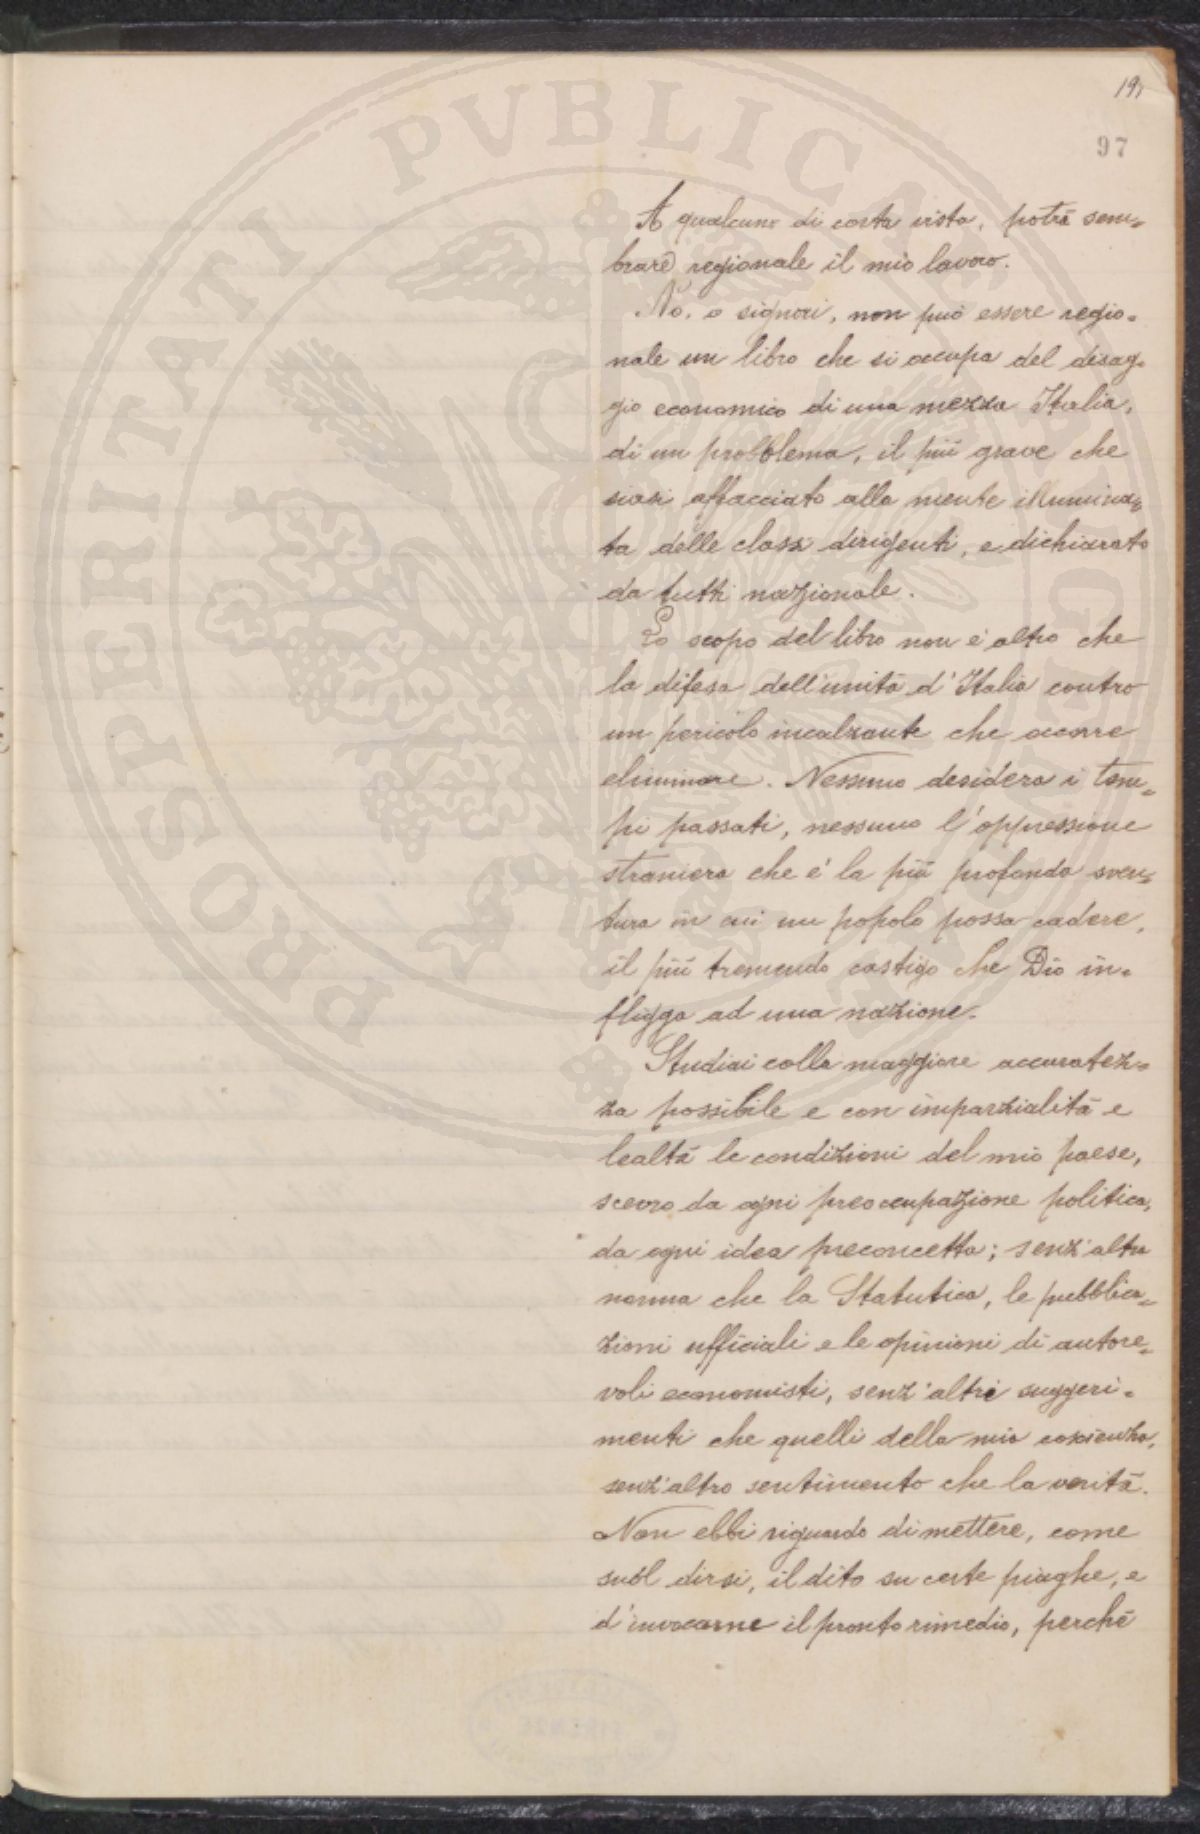 PROSPERITATI PVBLICAE AVGENDAE
191
97
A qualcuno di corta vista, potrà sem=
brare regionale il mio lavoro.
No, o signori, non può essere regio=
nale un libro che si occupa del disag=
gio economico di una mezza Italia,
di un problema, il più grave che
siasi affacciato alla mente illumina=
ta delle classi dirigenti, e dichiarato
da tutti nazionale.
Lo scopo del libro non è altro che
la difesa dell'unità d'Italia contro
un pericolo incalzante che occorre
eliminare. Nessuno desidera i tem=
pi passati, nessuno l'oppressione
straniera che è la più profonda sven=
tura in cui un popolo possa cadere,
il più tremendo castigo che Dio in=
fligga ad una nazione.
Studiai colla maggiore accuratez=
za possibile e con imparzialità e
lealtà le condizioni del mio paese,
scevro da ogni preoccupazione politica,
da ogni idea preconcetta; senz'altra
norma che la Statutica, le pubblica=
zioni ufficiali e le opinioni di autore=
voli economisti, senz'altri suggeri=
menti che quelli della mia coscienza,
senz'altro sentimento che la verità.
Non ebbi riguardo di mettere, come
suol dirsi, il dito su certe piaghe, e
d'invocarne il pronto rimedio, perchè